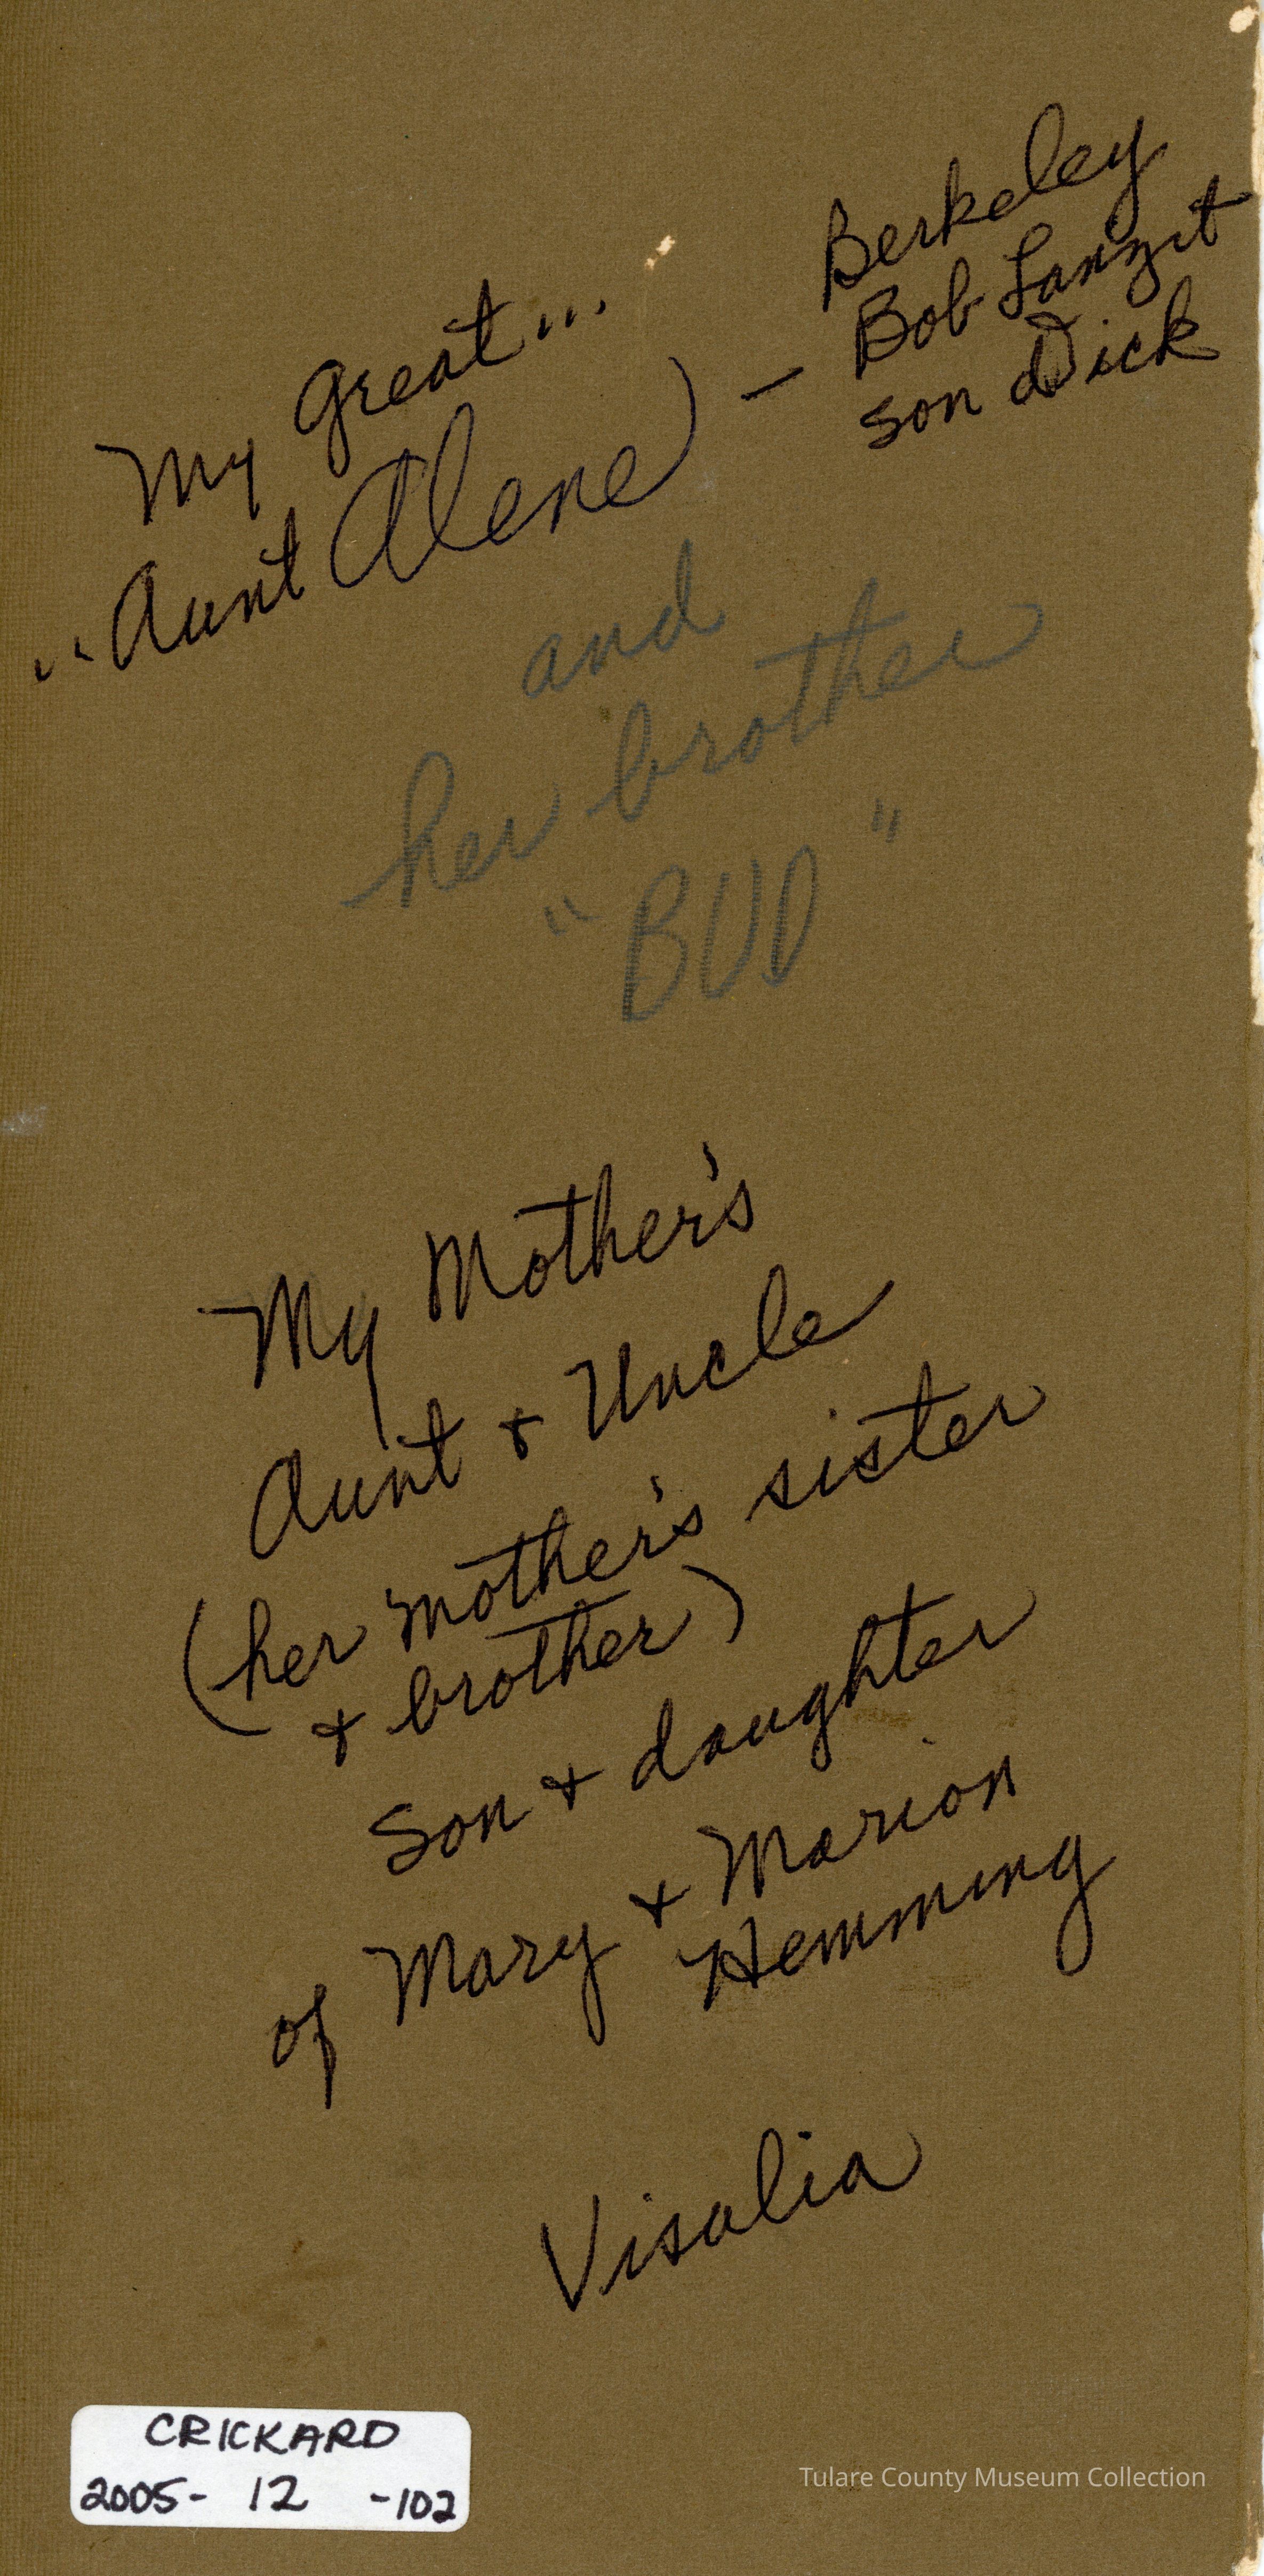 My great...
"Aunt Alene) — Berkeley
Bob Lanzit
son Dick
and
her brother
"BUD"
My Mother's
Aunt + Uncle
(her mother's sister
+ brother)
Son + daughter
of Mary + Marion
Hemming
Visalia
CRICKARD
2005- 12 -102
Tulare County Museum Collection